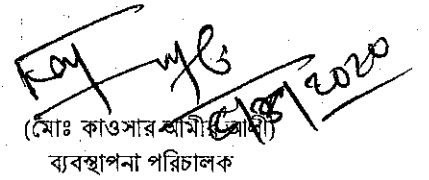 ২০২০
(মোঃ কাওসার আমীর আলী)
ব্যবস্থাপনা পরিচালক